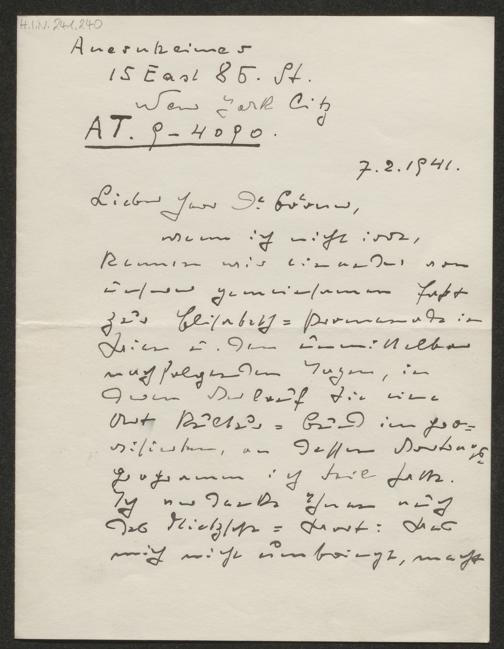 H.I.N. 241.240
Auernheimer
15 East 86. St.
New York City
AT. 9-4090.
7.2.1941.
Lieber Herr Dr.
wenn ich nicht irre,
kennen wir einander von
unserer gemeinsamen Haft
zur Elisabeth = Promenade in
Wien u. den unmittelbar
nachfolgenden Tagen, in
deren Verlauf Sie eine
Art Kultur = Bund im
an dessen Vortrags
programm ich teil hatte.
Ich verdanke Ihnen auch
das Nietzsche = Wort: Was
mich nicht umbringt, macht